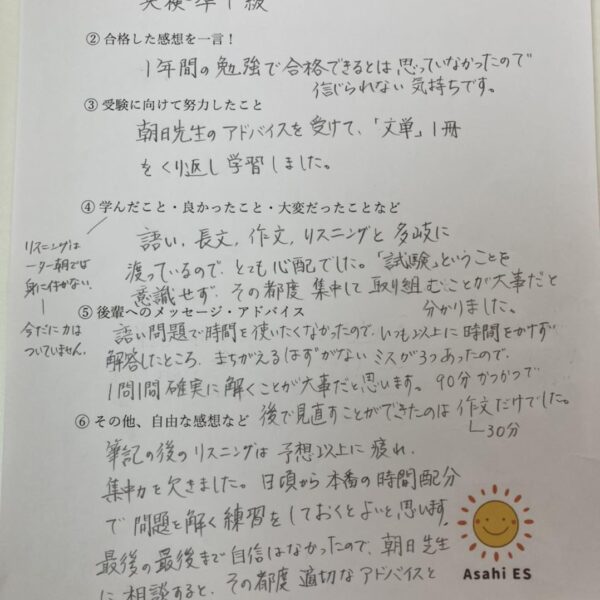 英検準1級
② 合格した感想を一言！
1年間の勉強で合格できるとは思っていなかったので
信じられない気持ちです。
③ 受験に向けて努力したこと
朝日先生のアドバイスを受けて、「文単」1冊
をくり返し学習しました。
④ 学んだこと・良かったこと・大変だったことなど
語い、長文、作文、リスニングと多岐に
渡っているので、とても心配でした。「試験」ということを
意識せず、その都度集中して取り組むことが大事だと
分かりました。
リスニングは
一夕一朝では
身に付かない。
今だに力は
ついていません。
⑤ 後輩へのメッセージ・アドバイス
語い問題で時間を使いたくなかったので、いつも以上に時間をかけず
解答したところ、まちがえるはずがないミスが3つあったので、
1問1問確実に解くことが大事だと思います。90分かつかつで
後で見直すことができたのは作文だけでした。
30分
⑥ その他、自由な感想など
筆記の後のリスニングは予想以上に疲れ、
集中力を欠きました。日頃から本番の時間配分
で問題を解く練習をしておくとよいと思います。
最後の最後まで自信はなかったので、朝日先生
に相談すると、その都度適切なアドバイスと
Asahi ES